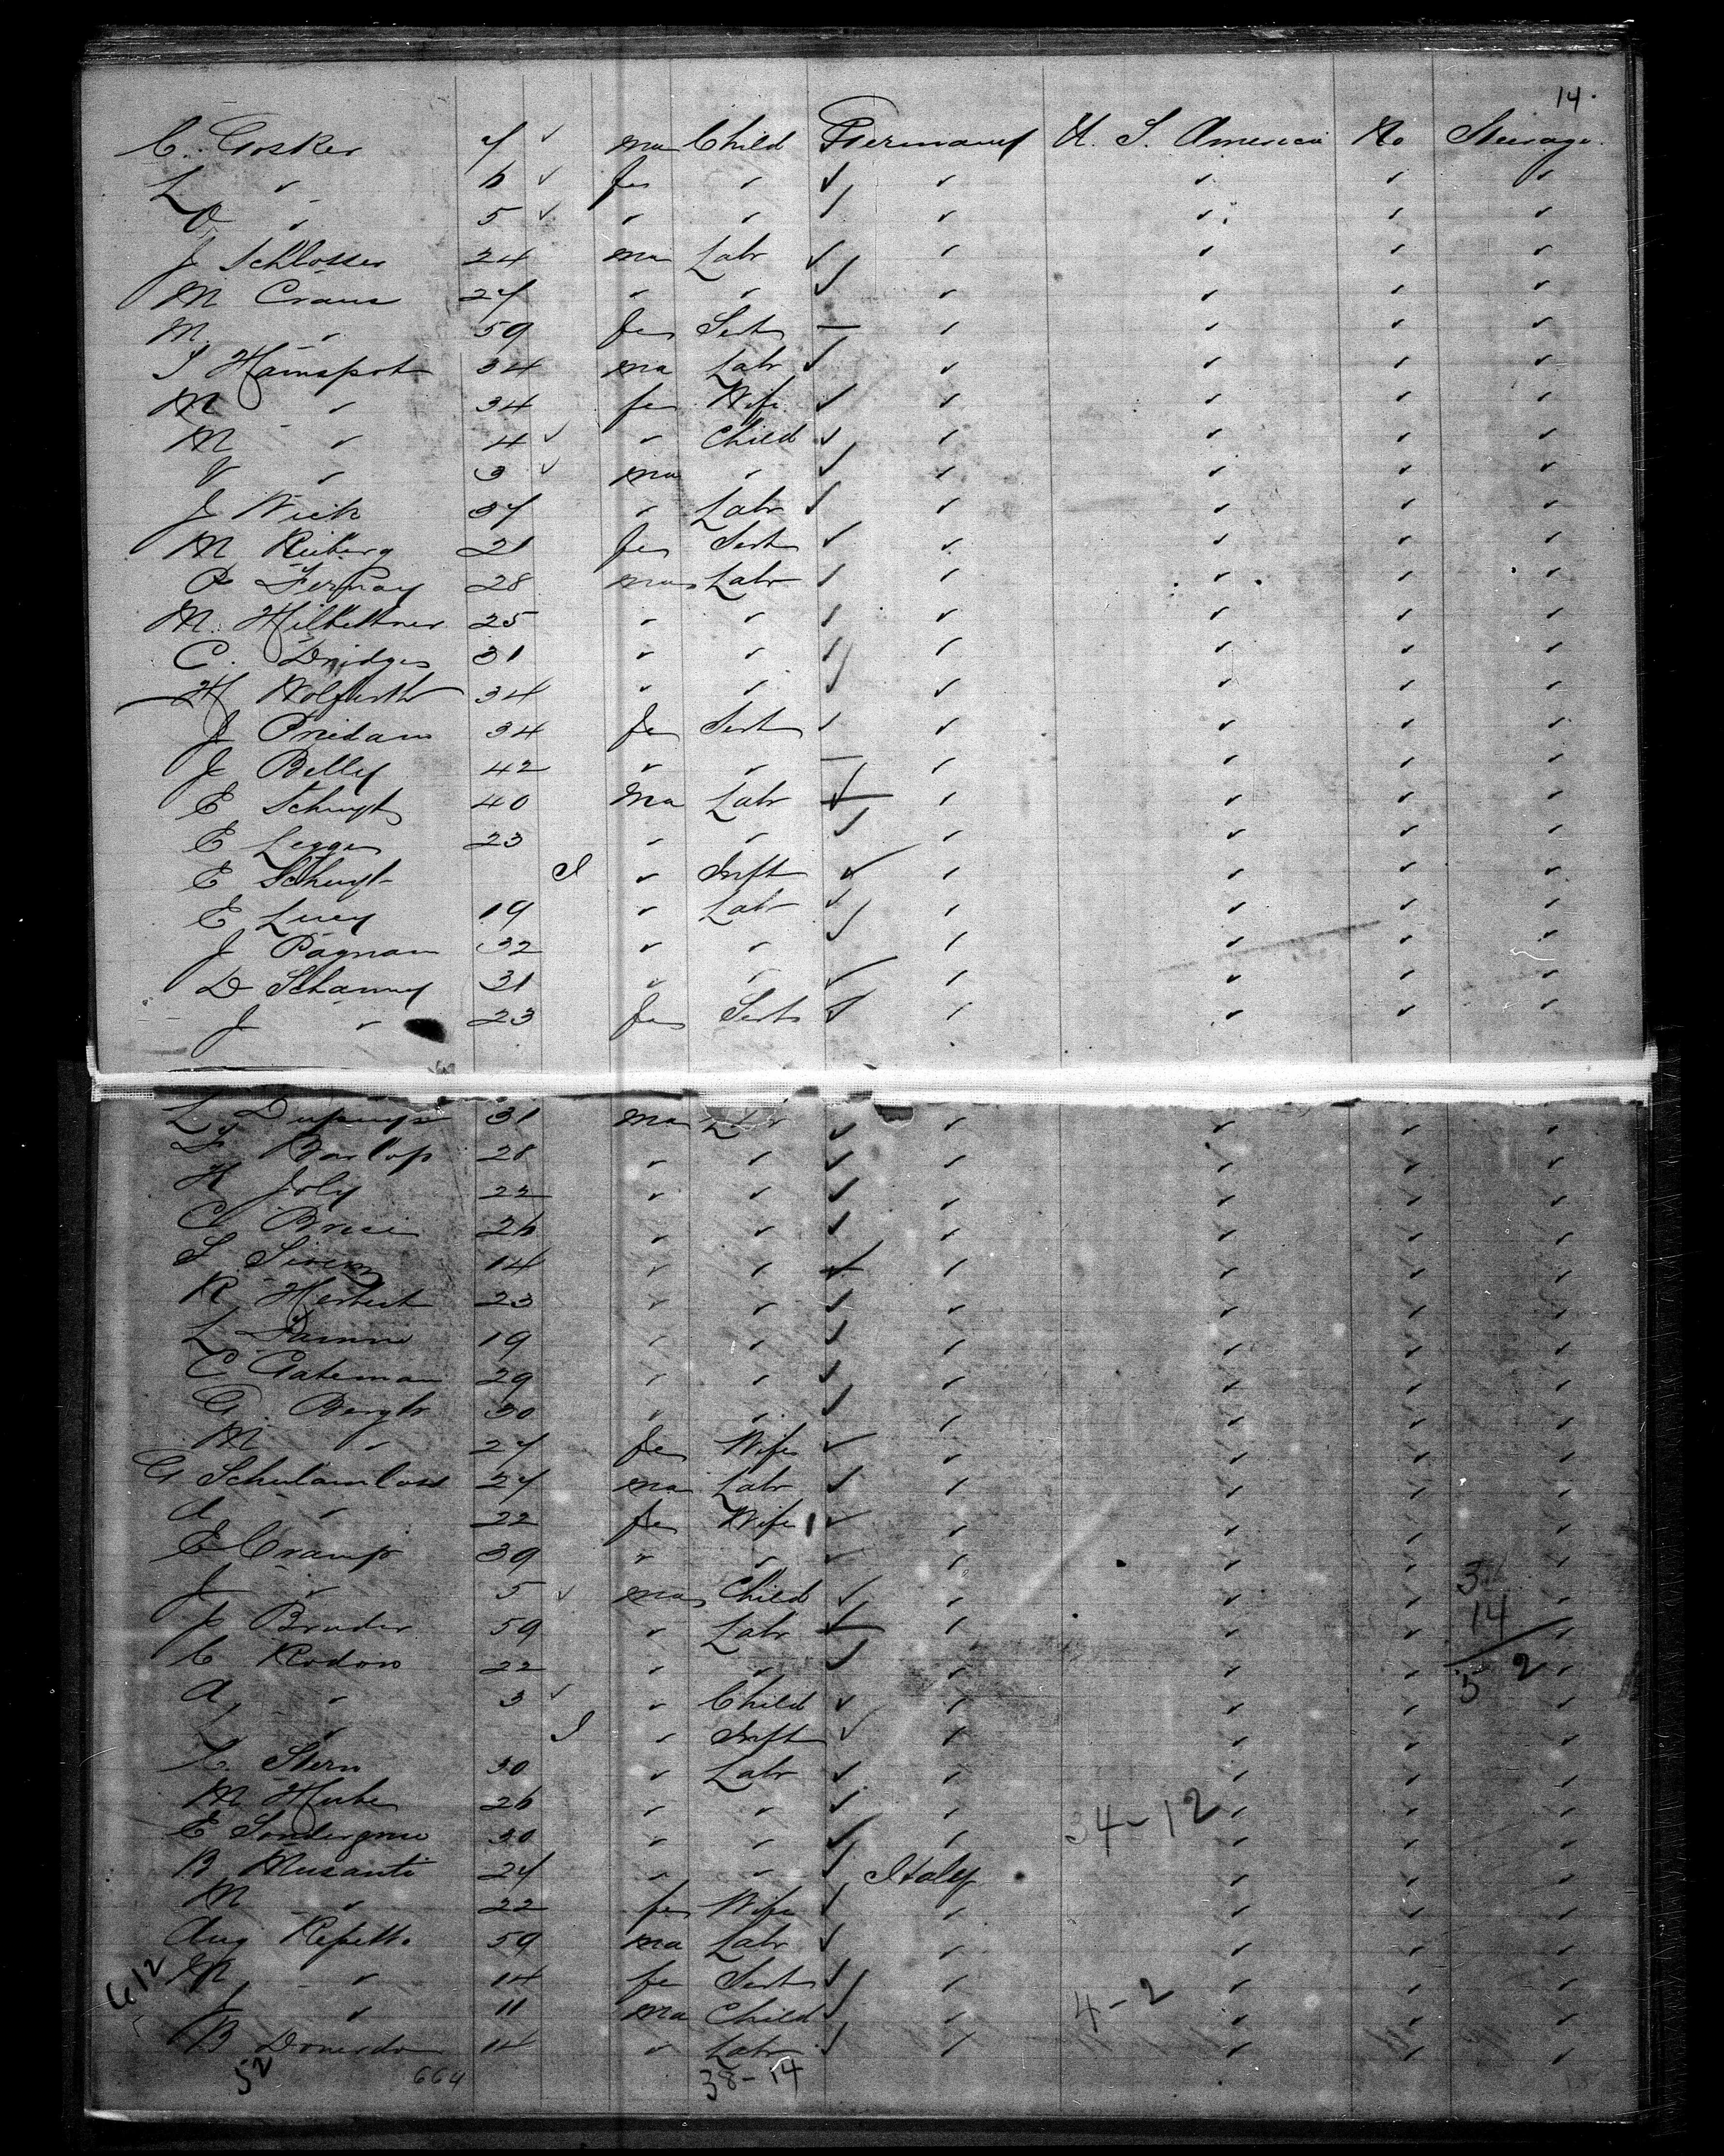 14.
C. Gosker 7 ✓ ma Child Germany U. S. America No Steerage.
L " 6 ✓ fe " ✓ " " " "
O " 5 ✓ " " ✓ " " " "
J Schlosser 24 ma Labr ✓ " " " "
M Craus 27 " " ✓ " " " "
M " 59 fe Sert — " " " "
J Hamspot 34 ma Labr ✓ " " " "
M " 34 fe Wife ✓ " " " "
M " 4 ✓ " Child ✓ " " " "
V " 3 ✓ ma " ✓ " " " "
J Wick 37 " Labr ✓ " " " "
M Reiberg 21 fe Sert ✓ " " " "
P Fernay 28 ma Labr ✓ " " " "
M. Hilkettner 25 " " ✓ " " " "
C. Dridges 31 " " ✓ " " " "
H Wolfurth 34 " " ✓ " " " "
J Pridam 34 fe Sert ✓ " " " "
J Belly 42 " " — " " " "
E Schuyt 40 ma Labr ✓ " " " "
E Legger 23 " " ✓ " " " "
E Schuyt I " Inft ✓ " " " "
E Lucy 19 " Labr ✓ " " " "
J Pagnan 32 " " ✓ " " " "
D Schanny 31 " " ✓ " " " "
J " 23 fe Sert ✓ " " " "
L 31 ma Labr ✓ " " " "
Barlop 28 " " ✓ " " " "
H Joly 22 " " ✓ " " " "
C Brice 26 " " ✓ " " " "
S 14 " " ✓ " " " "
R Herbert 23 " " ✓ " " " "
L 19 " " ✓ " " " "
C Gateman 29 " " ✓ " " " "
G Bergtr 30 " " ✓ " " " "
M " 27 fe Wife ✓ " " " "
G Schulamloss 27 ma Labr ✓ " " " "
A " 22 fe Wife ✓ " " " "
E Cramp 39 " " ✓ " " " "
J " 5 ✓ ma Child ✓ " " " " 38
J Bruder 59 " Labr ✓ " " " " 14
C Rodon 22 " " ✓ " " " " 5 2
A " 3 ✓ " Child ✓ " " " "
L " I " Inft ✓ " " " "
Stern 30 " Labr ✓ " " " "
M Hube 26 " " ✓ " 34-12 " " "
E Sondergrue 30 " " ✓ " " " "
B Musanti 27 " " ✓ Italy " " "
M " 22 fe Wife ✓ " " " "
Aug Repetto 59 ma Labr ✓ " " " "
612 M " 14 fe Sert ✓ " " " "
J " 11 ma Child ✓ " 4-2 " " "
B Donerdo 14 " Labr ✓ " " " "
52 664 38-14